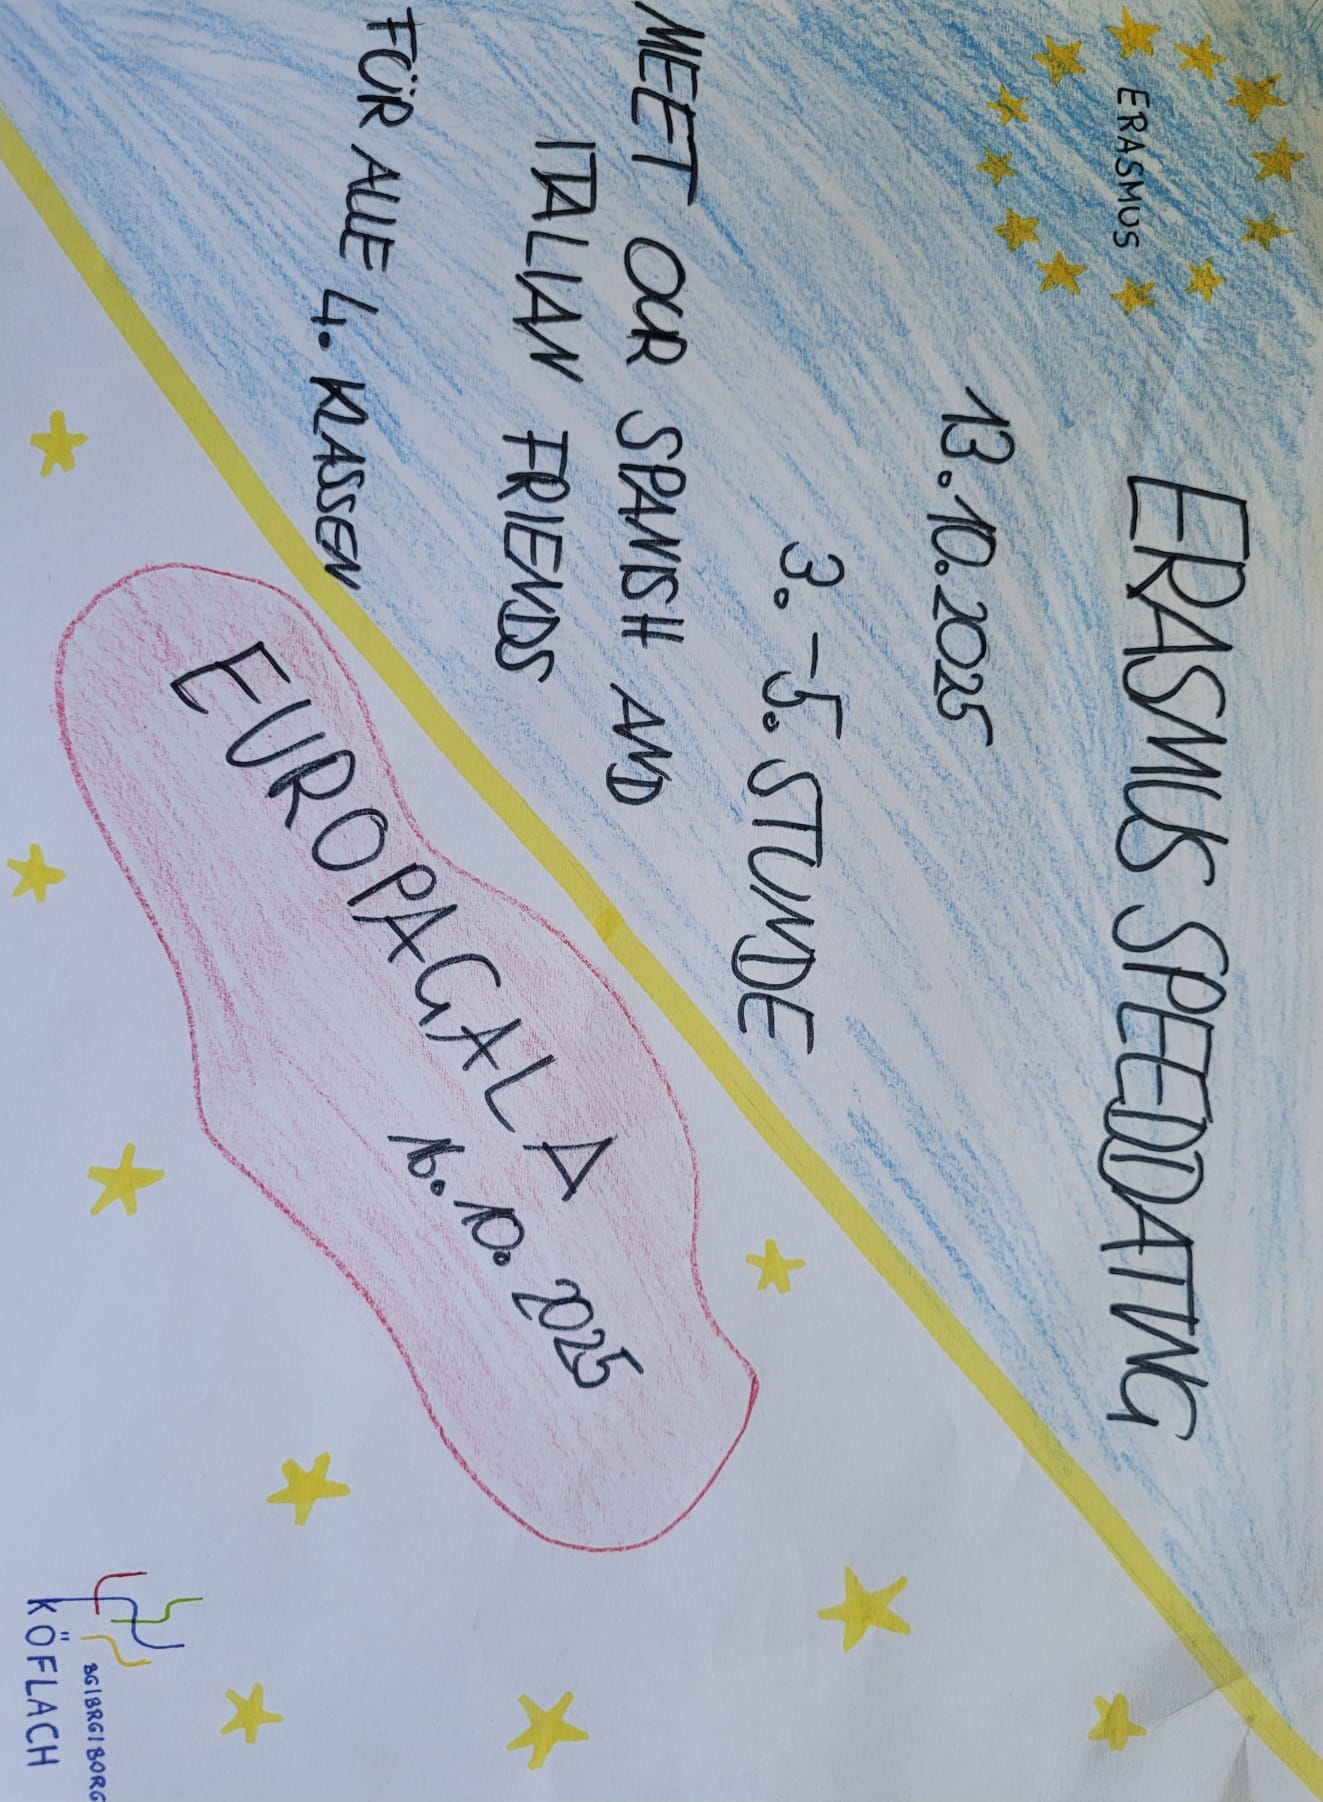 ERASMUS
ERASMUS SPEEDDATING
13.10.2025
3.-5. STUNDE
MEET OUR SPANISH AND
ITALIAN FRIENDS
FÜR ALLE 4. KLASSEN
EUROPAGALA
16.10.2025
BG/BRG/BORG
KÖFLACH